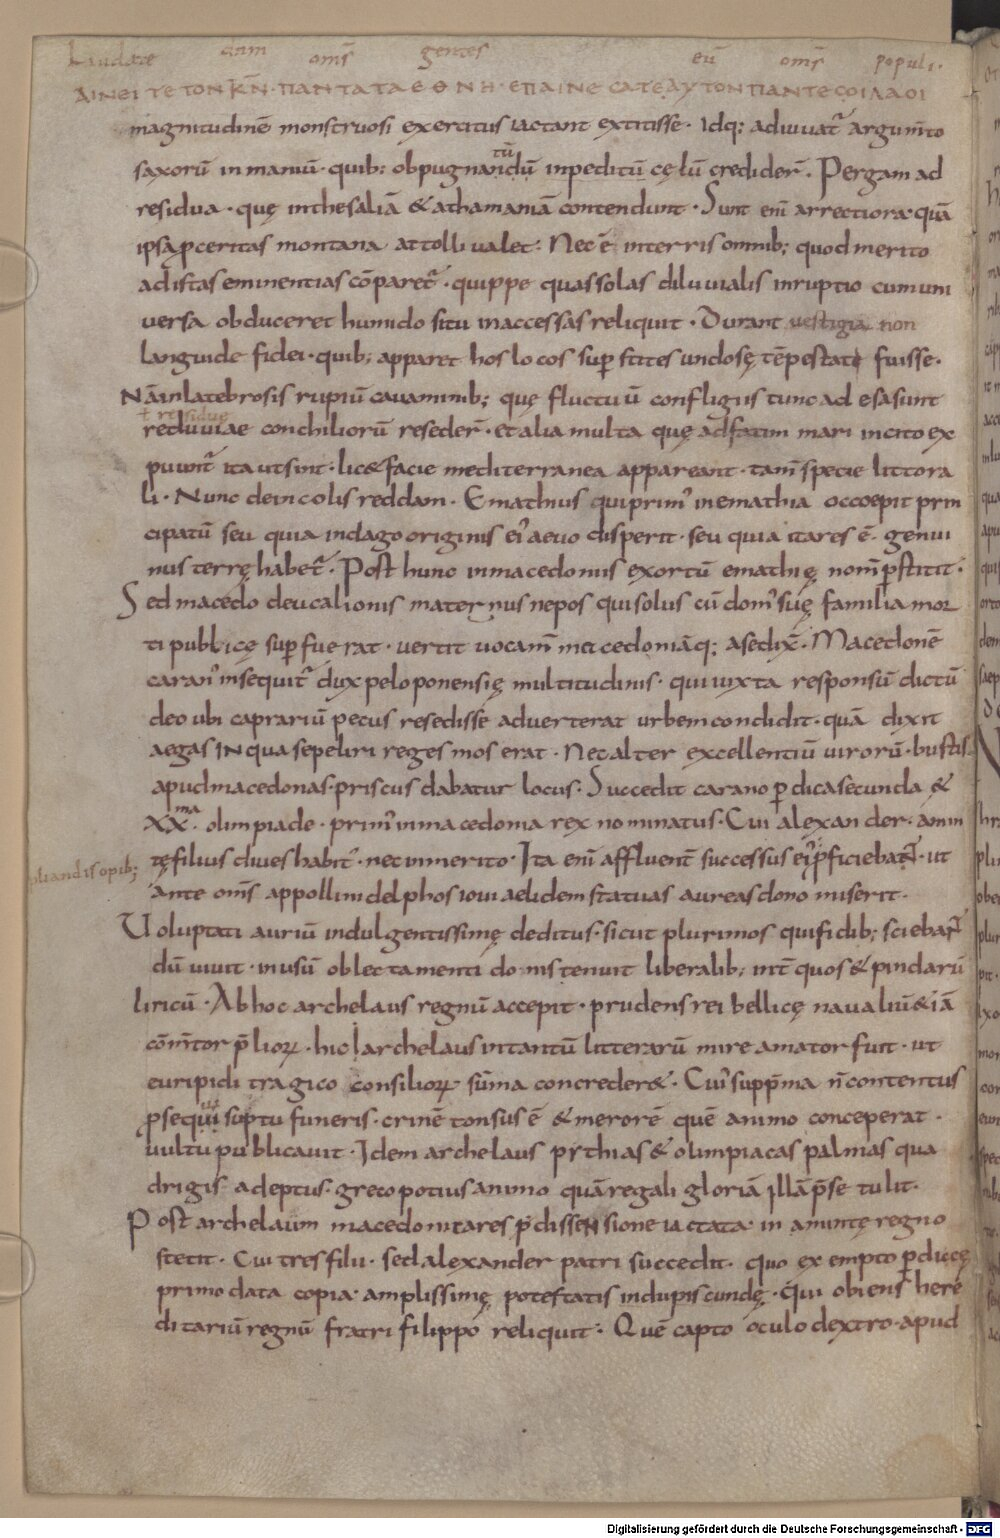 Laudate dnm om̄s gentes eū om̄s populi.
ΑΙΝΕΙΤΕ ΤΟΝ Κ̄Ν · ΠΑΝΤΑ ΤΑ ΕΘΝΗ · ΕΠΑΙΝΕСΑΤΕ ΑΥΤΟΝ ΠΑΝΤΕС ΟΙ ΛΑΟΙ
magnitudinē monstruosi exercitus iactant extitisse · Idq; adiuuat̄ argum̄to
saxorū inmaniū · quib; obpugnandū inpeditū cęlū credider̄ · Pergam ad
tū
residua · quę inthesaliā & athamaniā contendunt · Sunt enī arrectiora quā
ipsā ꝓceritas montana attolli ualet : Nec ē interris omnib; quod merito
adistas eminentias cōparet̄ · quippe quas solas diluuialis inruptio cum uni
uersa obduceret humido situ inaccessas reliquit · Durant uestigia non
languide fidei · quib; apparet hos locos suꝑstites undosę tēpestati fuisse ·
Nā inlatebrosis rupiū cauaminib; quę fluctuū confligiis tunc adesa sunt
ł residuę
reduuiae conchiliorū reseder̄ · et alia multa quę adfatim mari incito ex
puunt̄ ita ut sint · lic& facie mediterranea appareant · tam̄ specie littora
li · Nunc de incolis reddam · Emathius qui prim' inemathia occoepit prin
cipatū seu quia indago originis ei' aeuo disperit · seu quia ita res ē · genui
nus terrę habet̄ · Post hunc inmacedoniis exortū emathię nom̄ p̄stitit ·
Sed macedo deucalionis maternus nepos qui solus cū dom' suę familia mor
ti pubblicę suꝑfuerat · uertit uocam̄ macedoniāq; asedix̄ · Macedonē
caran' insequit̄ dux peloponensię multitudinis · qui iuxta responsū dictū
deo ubi caprariū pecus resedisse aduerterat urbem condidit · quā dixit
aegas IN qua sepeliri reges mos erat · Nec alter excellentiū uirorū · bustis
apud macedonas · priscus dabatur locus · Succedit carano ꝑdica secunda &
XX ma · olimpiade · prim' inmacedonia rex nominatus · Cui alexander · amin
tę filius diues habit' · nec inmerito · Ita enī affluent̄ successus ei' ꝓficiebat · ut
ante om̄s appollini delphos ioui aelidem statuas aureas dono miserit ·
Uoluptati auriū indulgentissimę deditus · sicut plurimos qui fidib; sciebant
dū uiuit · inusū oblectamenti donis tenuit liberalib; int̄ quos & pindarū
liricū · Ab hoc archelaus regnū accepit · prudens rei bellicę naualiū &iā
cōm̄tor p̄lioꝝ · hic archelaus intantū litterarū mire amator fuit · ut
euripidi tragico consilioꝝ sūma concreder& · Cui' supp̄ma n̄ contentus
ꝓsequi suptu funeris · crinē tonsus ē & merorē quē animo conceperat ·
uultu publicauit · Idem archelaus pythias & olimpiacas palmas qua
drigis adeptus · greco potius animo quā regali gloriā illā p̄se tulit ·
Post archelaum macedonica res p̄ dissensione iactata in amintę regno
stetit · Cui tres filii · sed alexander patri succedit · quo exempto ꝑdiccę
primo data copia amplissimę potestatis indupiscundę · qui obiens here
ditariū regnū fratri filippo reliquit · Quē capto oculo dextro · apud
Digitalisierung gefördert durch die Deutsche Forschungsgemeinschaft - DFG